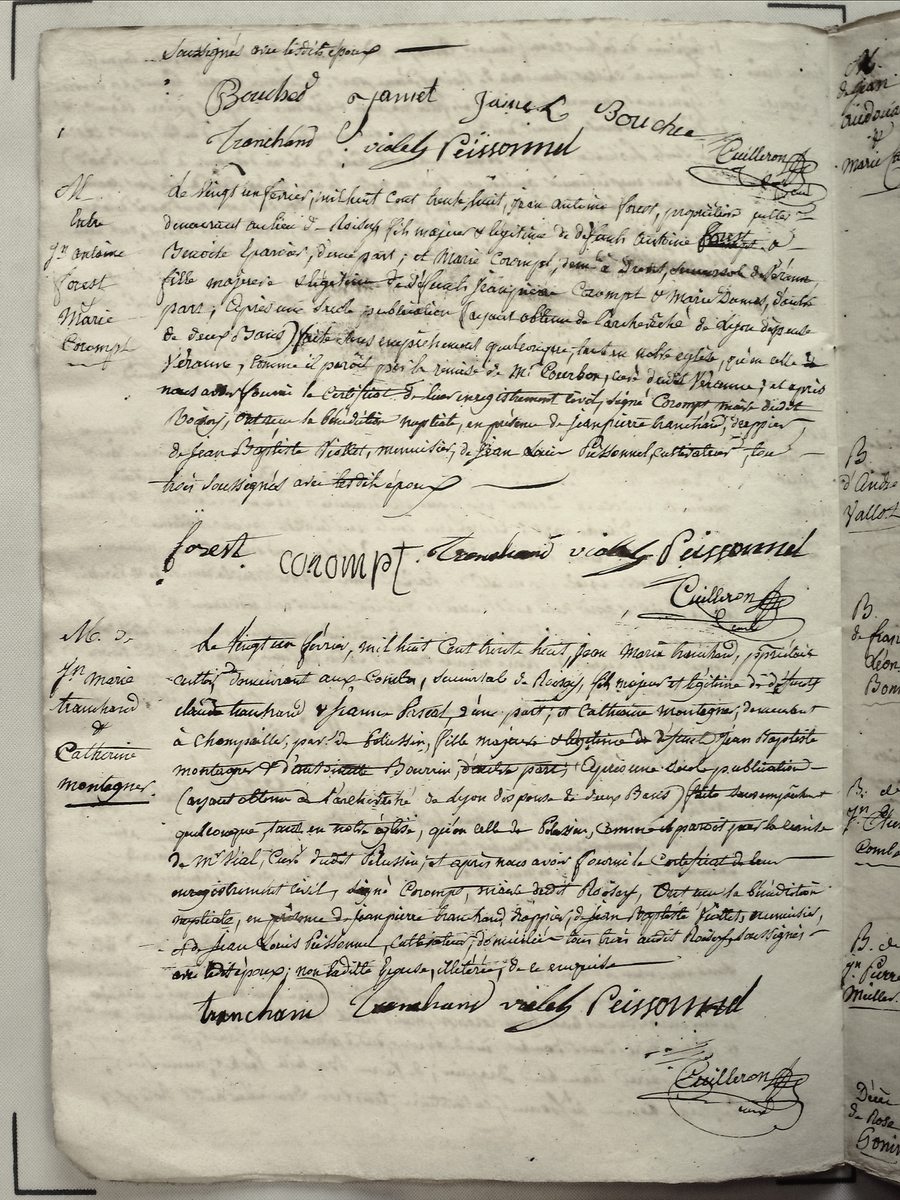 soussignés avec lesdits époux
Bouched Jamet Jamet Bouchee
Tranchand violet Peissonnel
Cuilleron
M
Entre
Jn antoine
forest
Marie
Corompt
Le Vingt un février, mil huit cent trente huit, jean antoine forest, propriétaire
demeurant au lieu de Roisey fils majeur & légitime de défunt antoine forest &
Benoite, d'une part; et Marie Corompt, dem.
fille majeure & légitime de défunts Jeanpierre Corompt & Marie Dumas, d'autre
part; Après une seule publication (ayant obtenu de l'archevêché de Lyon dispense
de deux Bans) faite sans empêchement quelconque, tant en notre église, qu'en celle de
Véranne, comme il paroit par la remise de Mr Courbon, curé dudit Véranne; et après
nous avoir fourni le Certificat de leur enregistrement civil, signé Corompt maire dudit
Roisey, Ont reçu la bénédiction nuptiale, en présence de jeanpierre tranchand, drappier,
de Jean Baptiste Violet, menuisier, de Jean Louis Peissonnel, cultivateur, tous
trois soussignés avec lesdits époux
forest corompt Tranchand violet Peissonnel
Cuilleron
curé
M. de
Jn Marie
tranchand
&
Catherine
montagner.
Le Vingt un février, mil huit cent trente huit, Jean Marie tranchand, propriétaire
cultiv. demeurant aux Combes, succursale de Roisey, fils majeur et légitime de défunts
claude tranchand & Jeanne Pascal, d'une part; et Catherine montagner, demeurant
à Champailler, par. de Pélussin, fille majeure & légitime de défunt Jean Baptiste
montagner & d' Bourrin, d'autre part; Après une seule publication
(ayant obtenu de l'archevêché de Lyon dispense de deux Bans) faite sans empêchement
quelconque, tant en notre église, qu'en celle de Pélussin, comme il paroit par la remise
de Mr Vial, Curé dudit Pélussin; et après nous avoir fourni le Certificat de leur
enregistrement civil, signé Corompt, maire dudit Roisey, Ont reçu la bénédiction
nuptiale, en présence de jeanpierre tranchand, drappier, de Jean Baptiste Violet, menuisier,
& de Jean Louis Peissonnel, Cultivateur, domiciliés tous trois audit Roisey, soussignés
avec lesdits époux; non laditte Epouse, illitérée, de ce enquise
tranchand Tranchand violet Peissonnel
Cuilleron
curé
M.
de Jean
&
Marie
B
d'André
Vallot
B
de fran
Léon
Bonn
B. de
Jn Etie
Comb
B. de
Jn Pierre
Muller
Décès
de Rose
Gonin